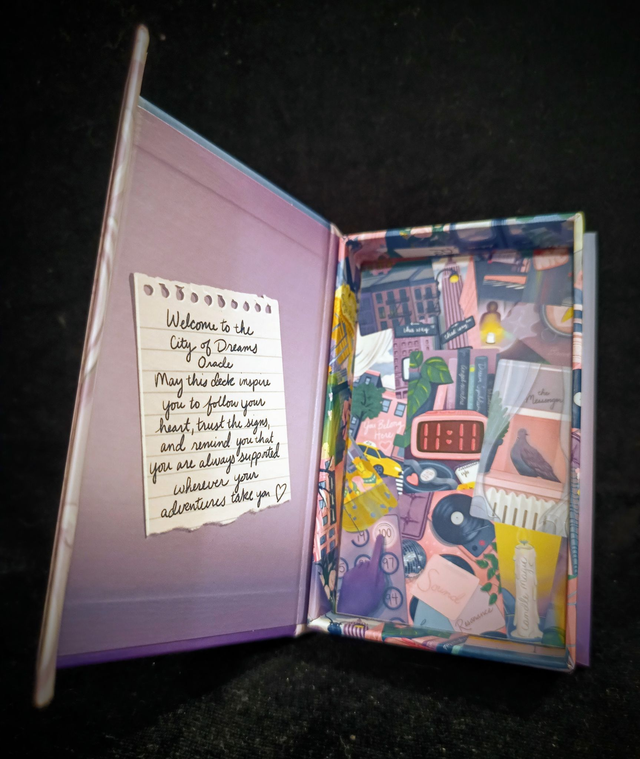 Welcome to the
City of Dreams
Oracle
May this deck inspire
you to follow your
heart, trust the signs,
and remind you that
you are always supported
wherever your
adventures take you ♡
this way
the
Messenger
11:11
You Belong
Here
100
Sound
Romance